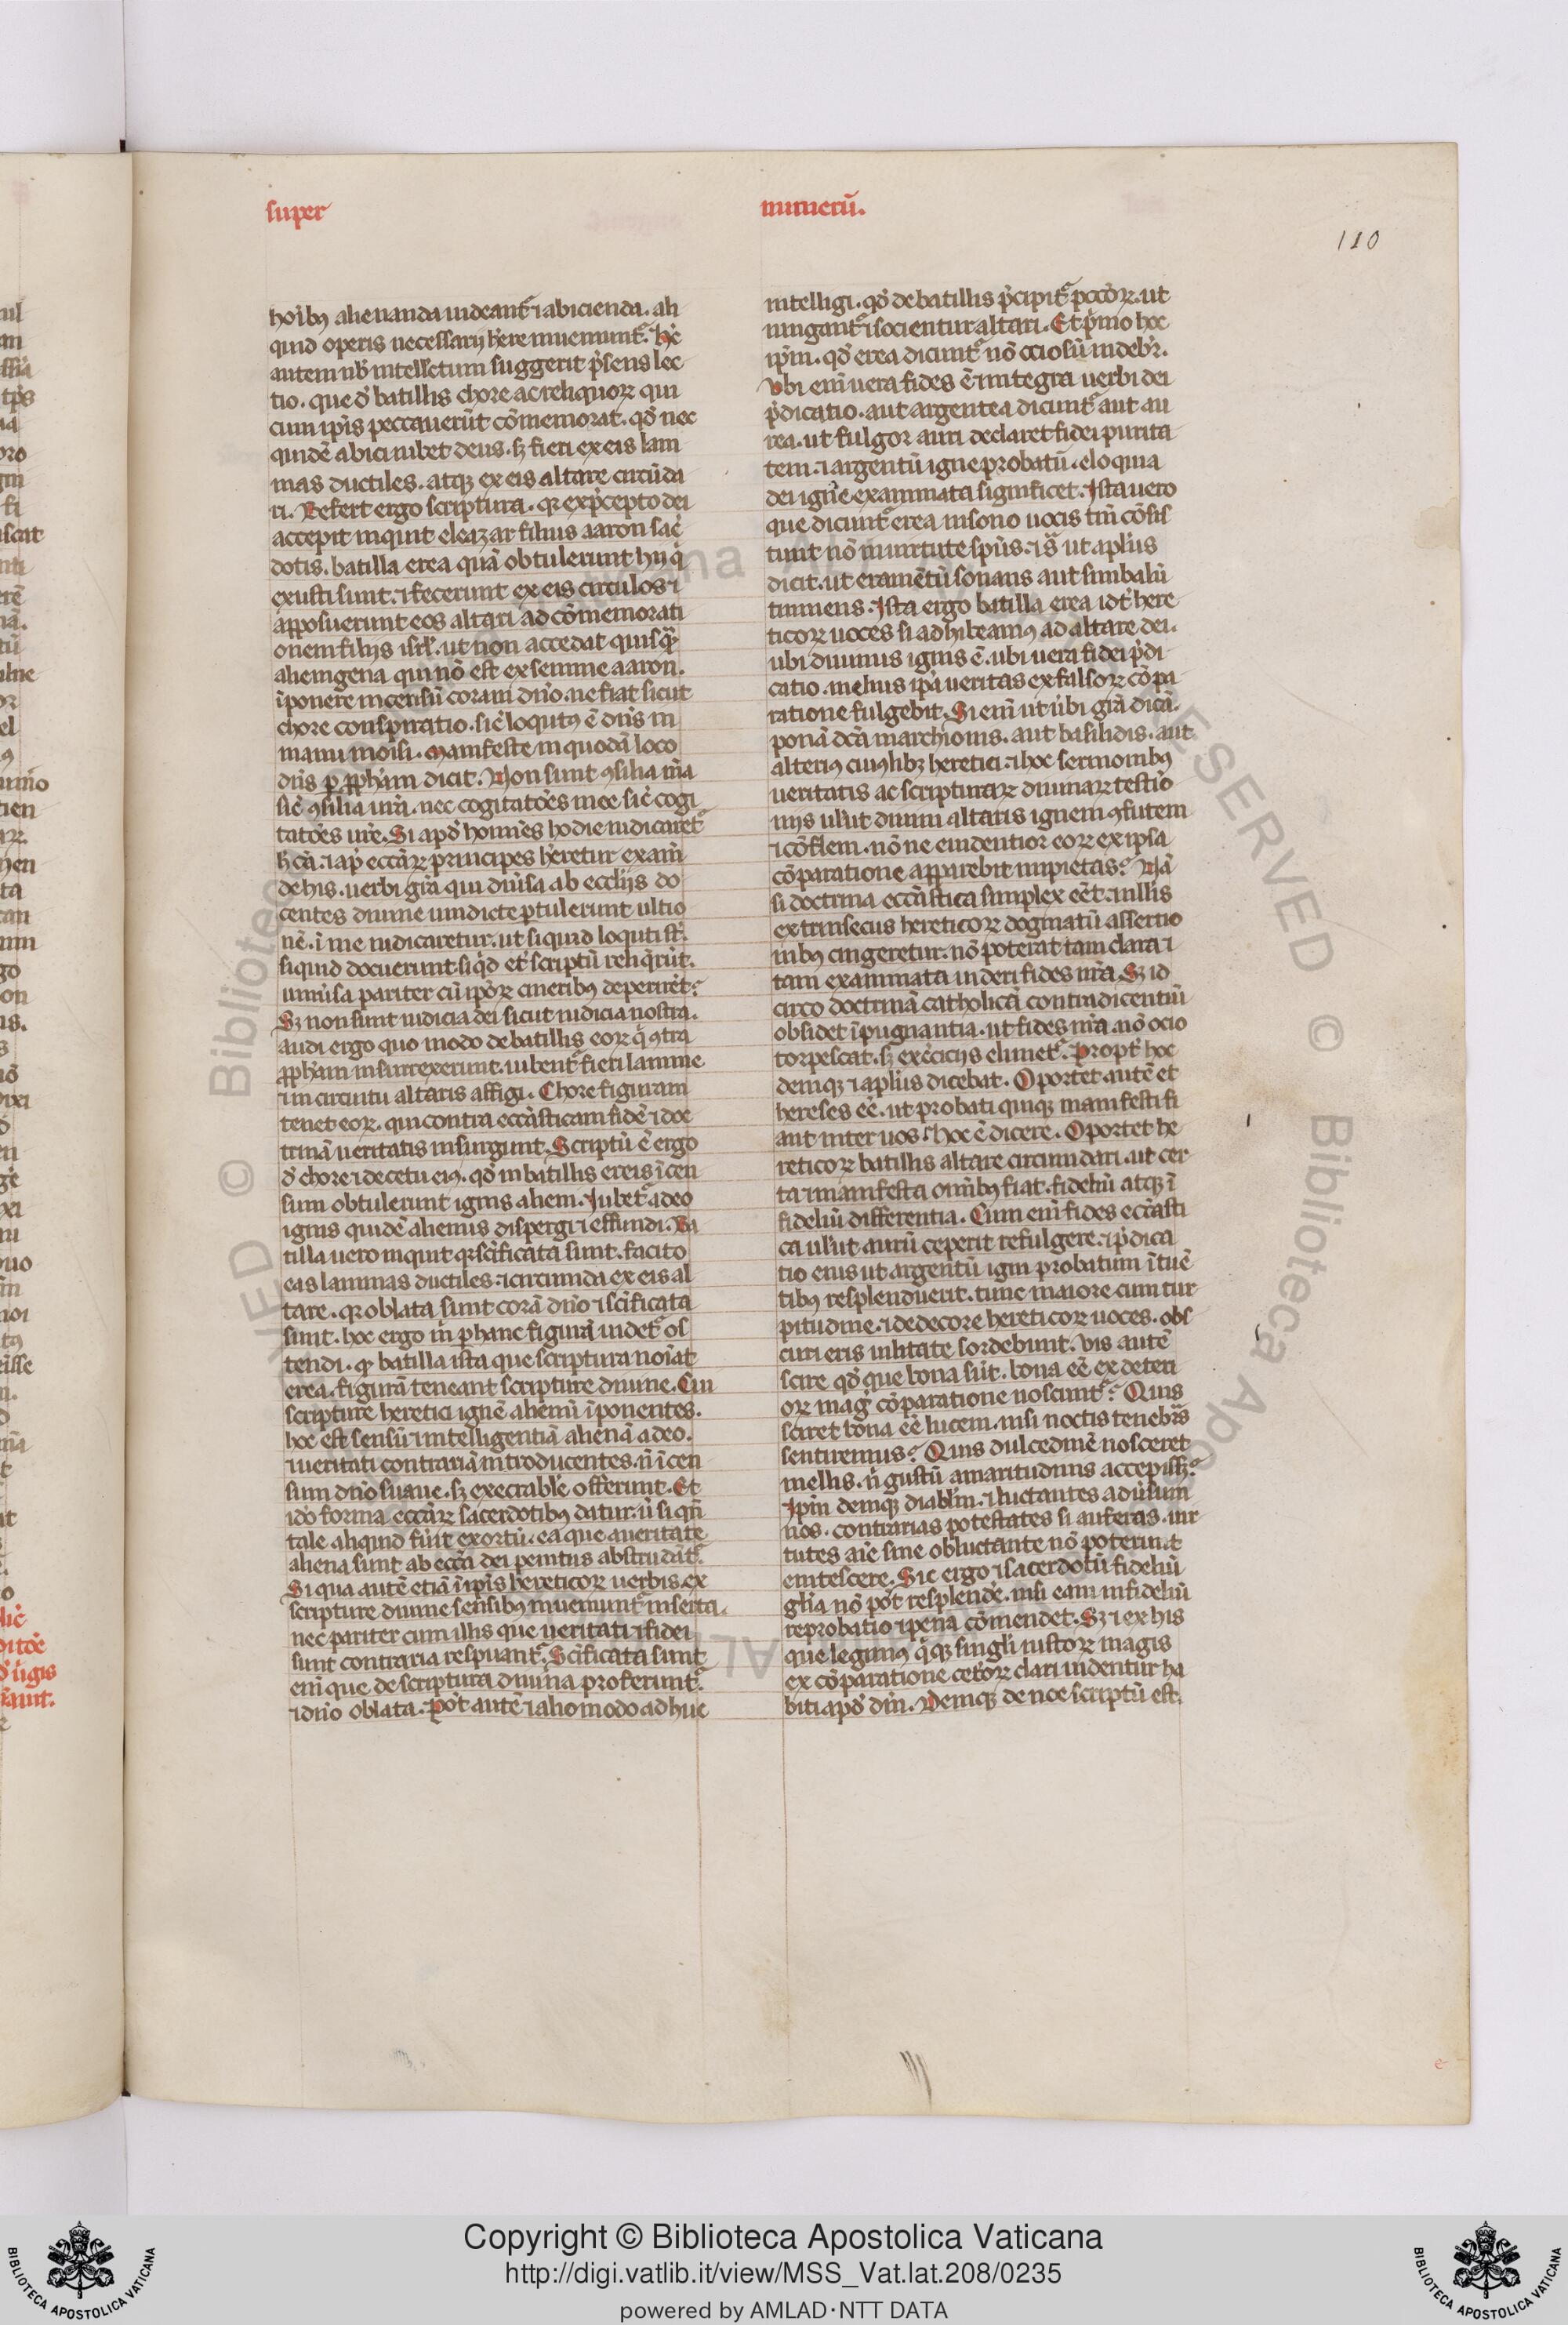 super
numerū.
110
hoı̄bꝫ alienanda uideant᷑ ⁊ abicienda. ali
quid operis necessarij h̾ere inueniunt᷑. h̾c
autem nb̾ intell̾ctum suggerit p̾sens lec
tio. que d̾ batillis chore ac reliquoꝝ qui
cum ip̄is peccauerūt cōmemorat. qd̾ nec
quidē abici iubet deus. sꝫ fieri ex eis lam
mas ductiles. atqꝫ ex eis altare circūda
ri. Refert ergo scriptura. qꝛ ex p̾cepto dei
accepit inquit eleazar filius aaron sac̾
dotis. batilla erea quā obtulerunt hij q̾
exusti sunt. ⁊ fecerunt ex eis circulos ⁊
apposuerunt eos altari ad cōmemorati
onem filijs isrl̾. ut non accedat quisqꝫ
alienigena qui nō est ex semine aaron.
īponere incensū coram dn̄o. ne fiat sicut
chore conspiratio. sic̾ loqutꝰ ē dn̄s in
manu moisi. Manifeste in quodā loco
dn̄s ꝑ ꝓph̾am dicit. Non sunt ꝯsilia m̄a
sic̾ ꝯsilia ur̄a. nec cogitatōes mee sic̾ cogi
tatōes ur̄e. Si apd̾ homı̄es hodie iudicaret᷑
h̾ cā. ⁊ ap̾ eccl̾aꝝ principes h̾eretur exam̄
de his. uerbi gr̄a qui diu̾sa ab eccl̾ijs do
centes diuine uindicte ꝑtulerunt ultio
nē. ı̄ me iudicaretur. ut si quid loquti st̾.
siquid docuerunt si qd̾ et̾ scriptū reliq̾rūt.
uniu̾sa pariter cū ipōꝝ cineribꝰ deperirēt?
Sꝫ non sunt iudicia dei sicut iudicia nostra.
audi ergo quo modo de batillis eoꝝ q̾ ꝯtra
ꝓph̾am insurrexerunt. iubent᷑ fieri lamine
⁊ in circuitu altaris affigi. Chore figuram
tenet eoꝝ. qui contra eccl̾asticam fidē ⁊ doc
trinā ueritatis insurgunt. Scriptū ē ergo
d̾ chore ⁊ de cetu eiꝰ. qd̾ in batillis ereis ı̄cen
sum obtulerunt ignis alieni. Jubet᷑ a deo
ignis quidē alienus dispergi ⁊ effundi. Ba
tilla uero inquit qꝛ sc̄ificata sunt. facito
eas laminas ductiles. ⁊ circumda ex eis al
tare. qꝛ oblata sunt corā dn̄o ⁊ sc̄ificata
sunt. hoc ergo m̄ ꝑ hanc figurā uidet᷑ os
tendi. qꝫ batilla ista que scriptura noı̄at
erea. figurā teneant scripture diuine. Cui
scripture heretici ignē alienū īponentes.
hoc est sensū ⁊ intelligentiā alienā a deo.
⁊ ueritati contrariā introducentes. n̄ ı̄cen
sum dn̄o suaue. sꝫ execrabile offerunt. Et
id̾o forma eccl̾aꝝ sacerdotibꝰ datur. ū si qn̄
tale aliquid fūit exortū. ea que a ueritate
aliena sunt ab eccl̾a dei penitus abstrudāt᷑.
Si qua autē etiā ı̄ ip̄is hereticoꝝ uerbis ex
scripture diuine sensibꝰ inueniunt᷑ inserta.
nec pariter cum illis que ueritati ⁊ fidei
sunt contraria respuant᷑. Sc̄ificata sunt
enı̄ que de scriptura diuina proferunt᷑.
⁊ dn̄o oblata. Pōt autē ⁊ alio modo adhuc
intelligi. qd̾ de batillis p̾cipit᷑ pccōꝝ. ut
iungant᷑ ⁊ socientur altari. Et p̾mo hoc
ip̄m. qd̾ erea dicunt᷑ nō ociosū uideb̾r.
Vbi enı̄ uera fides ē ⁊ integra uerbi dei
p̾dicatio. aut argentea dicunt᷑ aut au
rea. ut fulgor auri declaret fidei purita
tem. ⁊ argentū igne probatū. eloquia
dei igne examinata significet. Ista uero
que dicunt᷑ erea in sono uocis tm̄ cōsis
tunt nō in uirtute spūs. ⁊ s̄ ut apl̾us
dicit. ut eramētū sonans aut simbalū
tinniens. Ista ergo batilla erea id̾t here
ticoꝝ uoces si adhibeamꝰ ad altare dei.
ubi diuinus ignis ē. ubi uera fidei p̾di
catio. melius ip̄a ueritas ex falsoꝝ cōpa
ratione fulgebit. Si enı̄ ut ubi gr̄a dicā.
ponā dc̄a marchionis. aut basilidis. aut
alteriꝰ cuiuslibꝫ heretici. ⁊ hoc sermonibꝰ
ueritatis ac scripturaꝝ diuinaꝝ testio
nijs ulut diuini altaris ignem ꝯfutem
⁊ cōflem. nōne euidentior eoꝝ ex ipsa
cōparatione apparebit impietas? Nā
si doctrina eccl̾astica simplex eēt. ⁊ nullis
extrinsecus hereticoꝝ dogmatū assertio
nibꝰ cingeretur. nō poterat tam clara ⁊
tam examinata uideri fides nr̄a. Sꝫ id
circo doctrinā catholicā contradicentiū
obsidet īpugnantia. ut fides nr̄a nō ocio
torpescat. sꝫ exercicijs elimet᷑. Propt̾ hoc
deniqꝫ ⁊ apl̾us dicebat. Oportet autē et
hereses ēe. ut probati quiqꝫ manifesti fi
ant inter uos. hoc ē dicere. Oportet he
reticoꝝ batillis altare circumdari. ut cer
ta ⁊ manifesta om̄ibꝰ fiat. fideliū atqꝫ ı̄
fideliū differentia. Cum enı̄ fides eccl̾asti
ca ulut aurū ceperit refulgere. ⁊ p̾dica
tio eius ut argentū igni probatum ı̄tuē
tibꝰ resplenduerit. tunc maiore cum tur
pitudine. ⁊ dedecore hereticoꝝ uoces. obs
curi eris uilitate sordebunt. Vis autē
scire qd̾ que bona sūt. bona ēe ex deteri
oꝝ mag̾ cōparatione noscunt᷑? Quis
sciret bona ēe lucem. nisi noctis tenebr̄s
sentiremus? Quis dulcedinē nosceret
mellis. n̄ gustū amaritudinis accepissꝫ?
Ipm̄ deniqꝫ diabl̾m. ⁊ luctantes aduisum
nos. contrarias potestates si auferas. uir
tutes aīe sine obluctante nō poterunt
enitescere. Sic ergo ⁊ sacerdotū fideliū
gl̾ia nō pōt resplende̾. nisi eam infideliū
reprobatio ⁊ pena cōmendet. Sꝫ ⁊ ex his
que legimꝰ q̾qꝫ singl̾i iustoꝝ magis
ex cōparatione cet̾oꝝ clari uidentur ha
biti apd̾ dm̄. Deniqꝫ de noe scriptū est.
Copyright © Biblioteca Apostolica Vaticana
http://digi.vatlib.it/view/MSS_Vat.lat.208/0235
powered by AMLAD·NTT DATA